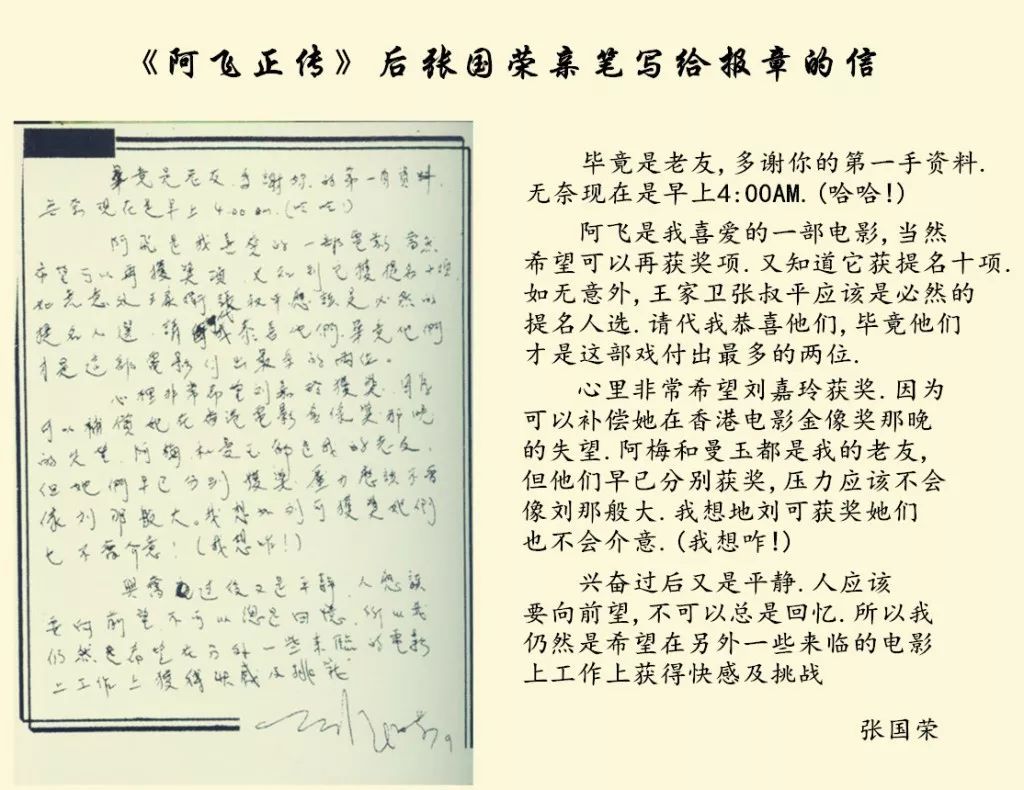 《阿飞正传》后张国荣亲笔写给报章的信
畢竟是老友,多謝你的第一手資料.
無奈現在是早上4:00am.(哈哈!)
阿飛是我喜愛的一部電影,當然
希望可以再獲獎項.又知到它獲提名十項.
如無意外,王家衛張叔平應該是必然的
提名人選.請 我恭喜他們.畢竟他們
才是這部電影付出最多的兩位。
心裡非常希望刘嘉玲獲獎.因為
可以補償她在香港電影金像獎那晚
的失望.阿梅和曼玉都是我的老友,
但她們早已分別獲獎.壓力應該不會
像刘那般大.我想如刘可獲獎她們
也不會介意!(我想咋!)
興奮過後又是平靜.人應該
要向前望,不可以總是回憶.所以我
仍然是希望在另外一些來臨的電影
上工作上獲得快感及挑戰
毕竟是老友,多谢你的第一手资料.
无奈现在是早上4:00AM.(哈哈!)
阿飞是我喜爱的一部电影,当然
希望可以再获奖项.又知道它获提名十项.
如无意外,王家卫张叔平应该是必然的
提名人选.请代我恭喜他们,毕竟他们
才是这部戏付出最多的两位.
心里非常希望刘嘉玲获奖.因为
可以补偿她在香港电影金像奖那晚
的失望.阿梅和曼玉都是我的老友,
但他们早已分别获奖,压力应该不会
像刘那般大.我想地刘可获奖她们
也不会介意.(我想咋!)
兴奋过后又是平静.人应该
要向前望,不可以总是回忆.所以我
仍然是希望在另外一些来临的电影
上工作上获得快感及挑战
张国荣